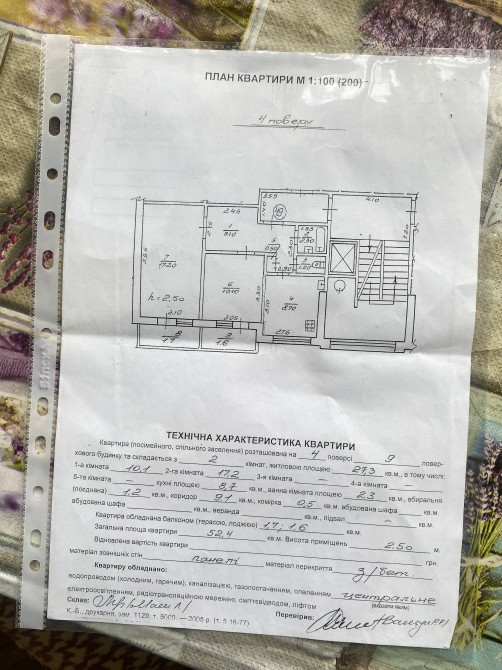 ПЛАН КВАРТИРИ М 1:100 (200)
4 поверху
2.55
4.10
2.45
1
9.10
1.40
5
0.50
2
2.30
3
1.20
0.90
7
17.20
6
10.10
4
8.70
h=2,50
3.10
2.05
2.75
8
1.7
9
1.6
ТЕХНІЧНА ХАРАКТЕРИСТИКА КВАРТИРИ
Квартира (посімейного, спільного заселення) розташована на 4 поверсі 9 повер-
хового будинку та складається з 2 кімнат, житловою площею 27,3 кв.м., в тому числі:
1-а кімната 10,1 2-га кімната 17,2 3-я кімната – 4-а кімната –
5-та кімната – кухня площею 8,7 кв.м., ванна кімната площею 2,3 кв.м., вбиральня
(поєднана) 1,2 кв.м., коридор 9,1 кв.м., комірка 0,5 кв.м., вбудована шафа – кв.м.,
вбудована шафа – кв.м., веранда – кв.м., підвал – кв.м.
Квартира обладнана балконом (терасою, лоджією) 1,7; 1,6 кв.м.
Загальна площа квартири 52,4 кв.м. Висота приміщень 2,50 м.
Відновлена вартість квартири грн.
матеріал зовнішніх стін панелі матеріал перекриття з/бет
Квартиру обладнано:
водопроводом (холодним, гарячим), каналізацією, газопостачанням, опаленням центральне
електроосвітленням, радіотрансляційною мережею, сміттєвідводом, ліфтом (вказати яким)
Склав: Перевірив:
К.-Б., друкарня, зам. 1129, т. 5000. — 2005 р. (т. 5 16-77)